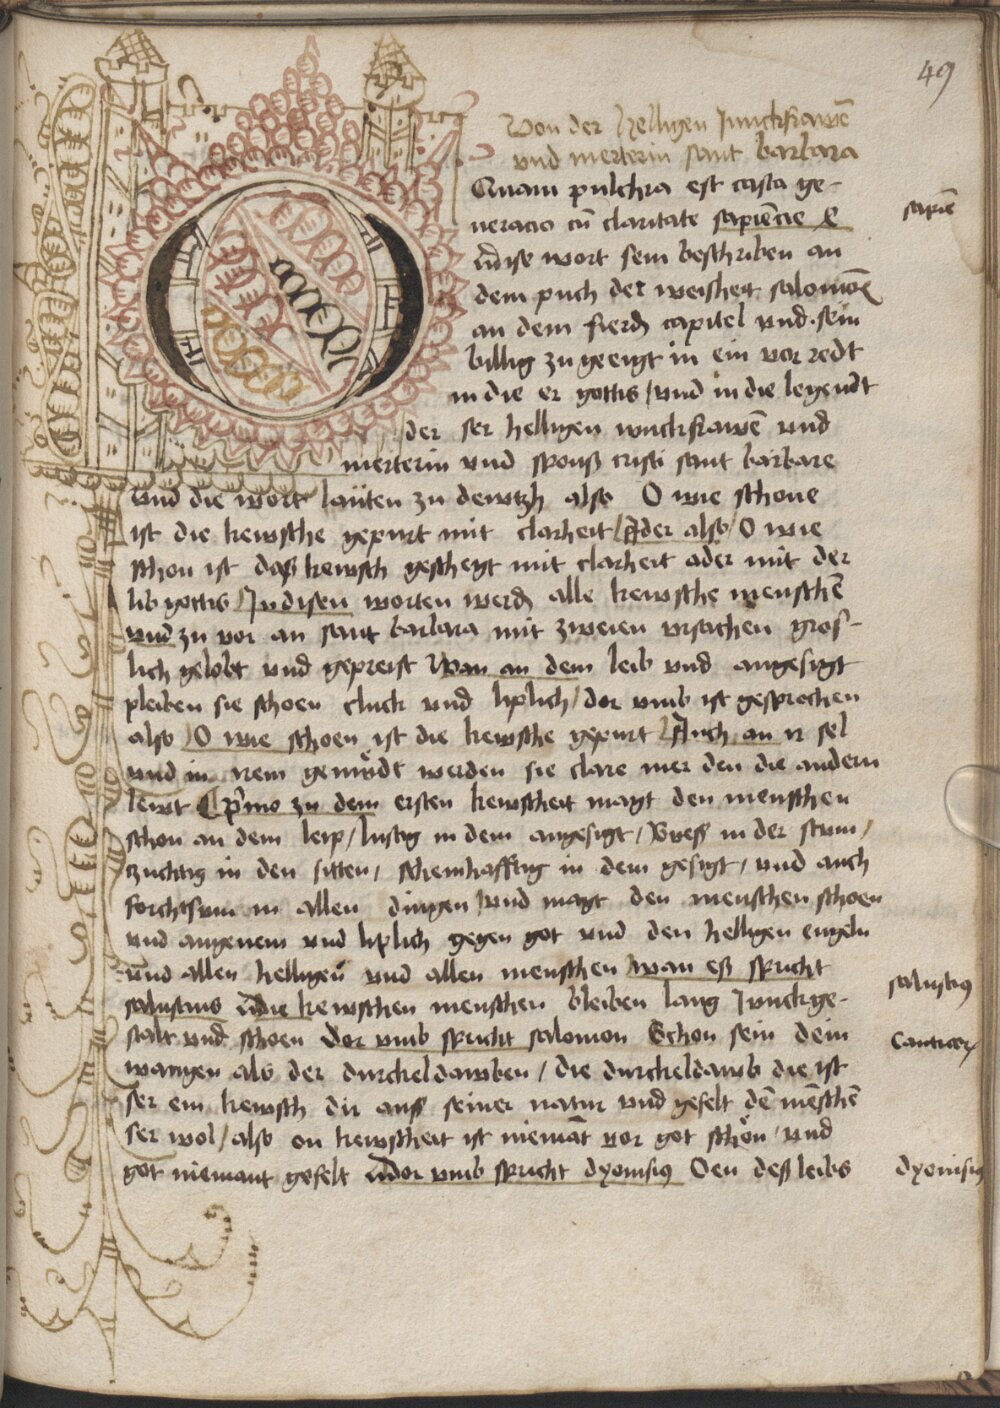 49
Von der Helligen Junckfrawē
vnd merterin sant barbara
Quam pulchra est casta ge-
neracio cū claritate sapiēcie 4
sapiē
Dise wort sein beschriben an
dem puch der weisheit salomōs
an dem fierdē capitel vnd sein
billig zu geeigt in ein vor redt
in die er gottis / vnd in die legendt
der ser helligen iunckfrawē vnd
merterin vnd spouß cristi sant barbare
vnd die wort laüten zu dewtzh also O wie schone
ist die kewsche gepurt mit clarheit / Ader also / O wie
schon ist daß kewsch geschegt mit clarheit ader mit der
lib gottis / In disen worten werdē alle kewsche menschē
vnd zu vor an sant barbara mit zweien vrsachen gros-
lich gelobt vnd gepreist Wan an dem leib vnd angesigt
pleiben sie schoen cluck vnd liplich / dor vmb ist gesprochen
also / O wie schoen ist die kewsche gepurt / Auch an ir sel
vnd in irem gemüdt werden sie clare mer den die andern
lewt ¶ P'mo zu dem ersten kewscheit magt den menschen
schon an dem leip / lustig in dem angesigt / Sueß in der stim /
zuchtig in den sitten / schemhafftig in dem gesigt / vnd auch
forchtsam in allen dingen / vnd magt den menschen schoen
vnd angenem vnd liplich gegen got vnd den helligen engeln
vnd allen helligen vnd allen menschen / wan eß spricht
salustius
salustius Die kewschen menschen bleiben lang Junckge-
stalt vnd schoen Dor vmb spricht salomon Schon sein dein
Canticoꝝ
wangen als der durckeldawben / die durckeldawb die ist
ser ein kewsch dir auß seiner natur vnd gefelt dē mēschē
ser wol / also on kewscheit ist niemāt vor got schön / vnd
got niemant gefelt Dor vmb spricht dyonisius Den deß leibs
dyonisius